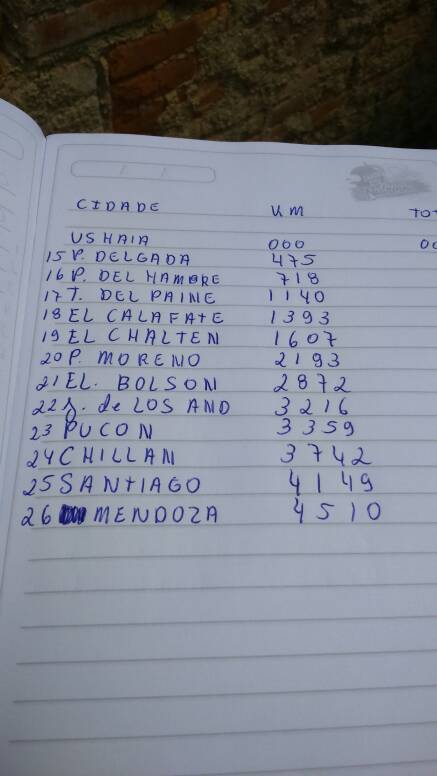 CIDADE UM TOT
USHAIA 000 00
15 P. DELGADA 475
16 P. DEL HAMBRE 718
17 T. DEL PAINE 1140
18 EL CALAFATE 1393
19 EL CHALTEN 1607
20 P. MORENO 2193
21 EL. BOLSON 2872
22 J. de LOS AND 3216
23 PUCON 3359
24 CHILLAN 3742
25 SANTIAGO 4149
26 MENDOZA 4510